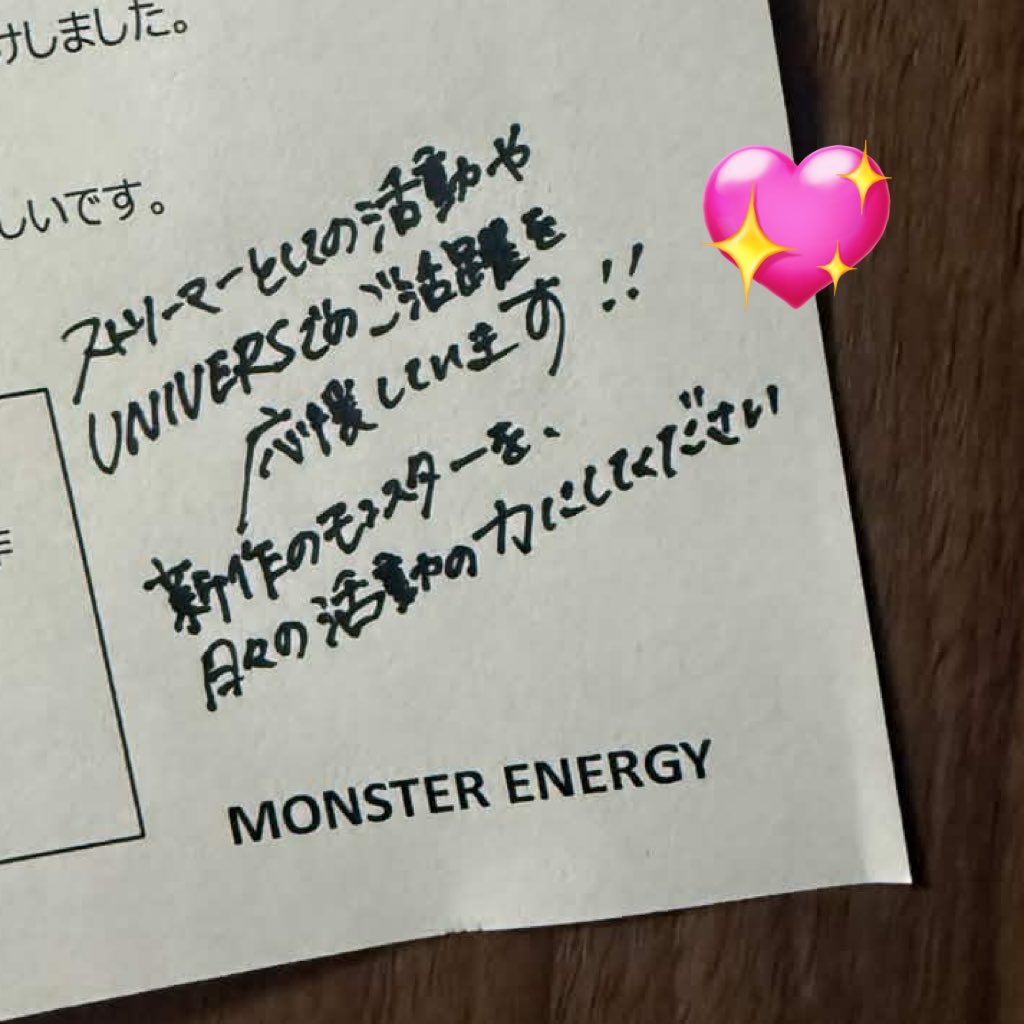 けしました。
しいです。
ストリーマーとしての活動や
UNIVERSでのご活躍を
応援しています!!
新作のモンスターを、
日々の活動の力にしてください
MONSTER ENERGY